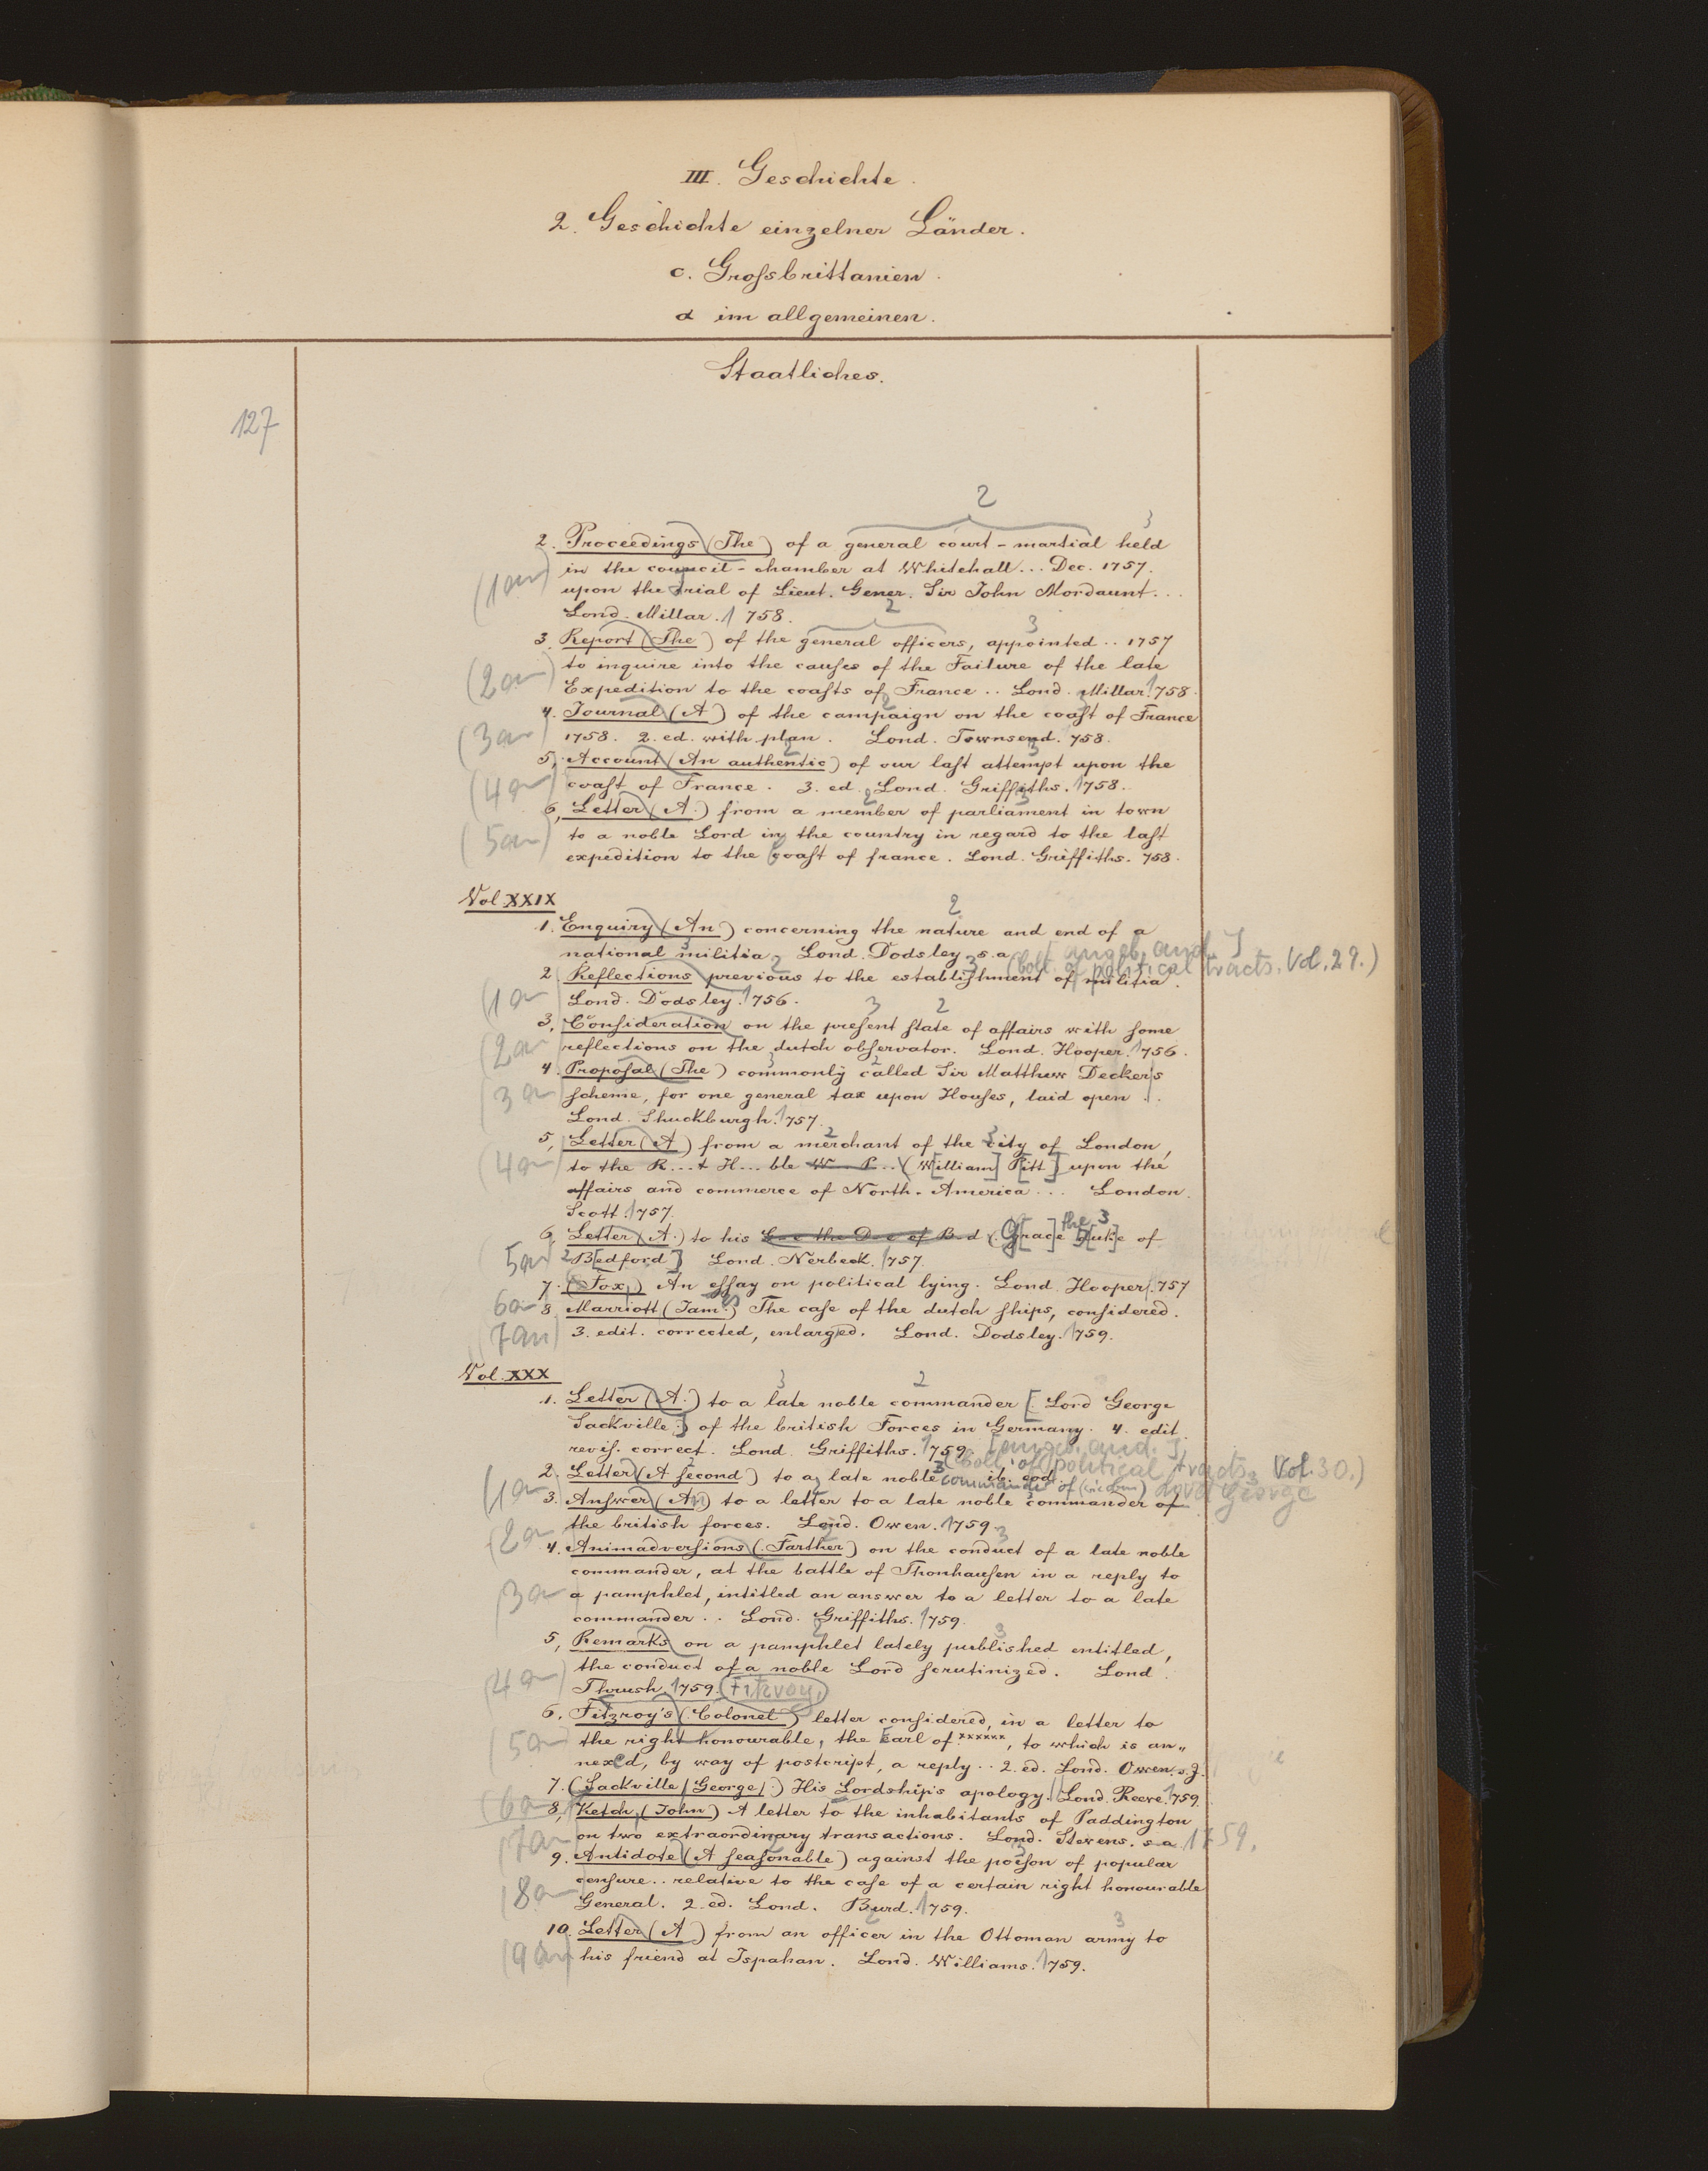 III. Geschichte.
2. Geschichte einzelner Länder.
c. Grossbrittanien.
α im allgemeinen.
Staatliches.
127
2
3
2. Proceedings (The) of a general court-martial held
(1an) in the council-chamber at Whitehall... Dec. 1757.
upon the trial of Lieut. Gener. Sir John Mordaunt...
Lond. Millar. 1758.
2
3
3. Report (The) of the general officers, appointed .. 1757
(2an) to inquire into the causes of the Failure of the late
Expedition to the coasts of France .. Lond. Millar. 1758.
4. Journal (A) of the campaign on the coast of France
(3an) 1758. 2. ed. with plan. Lond. Townsend. 758.
5. Account (An authentic) of our last attempt upon the
(4an) coast of France. 3. ed. Lond. Griffiths. 1758.
6. Letter (A.) from a member of parliament in town
(5an) to a noble Lord in the country in regard to the last
expedition to the coast of france. Lond. Griffiths. 758.
Vol XXIX
2
1. Enquiry (An) concerning the nature and end of a
national militia. Lond. Dodsley. s. a. [angeb. and.]
(Coll. of political tracts. Vol. 29.)
2. Reflections previous to the establishment of militia.
(1an) Lond. Dodsley. 1756.
3 2
3. Consideration on the present state of affairs with some
(2an) reflections on the dutch observator. Lond. Hooper. 1756.
4. Proposal (The) commonly called Sir Matthew Decker's
(3an) scheme, for one general tax upon Houses, laid open ..
Lond. Shuckburgh. 1757.
5. Letter (A) from a merchant of the city of London,
(4an) to the R...t H...ble W... P... (W[illiam] P[itt]) upon the
affairs and commerce of North-America ... London.
Scott. 1757.
6. Letter (A.) to his G...e the D...e of B...d (G[race] the D[uke] of
5an) B[edford]) Lond. Nerbeck. 1757.
7. (Fox,) An essay on political lying. Lond. Hooper. 757
6an 8. Marriott (Jam.) The case of the dutch ships, considered.
(7an) 3. edit. corrected, enlarged. Lond. Dodsley. 1759.
Vol. XXX
3 2
1. Letter (A.) to a late noble commander [Lord George
Sackville] of the british Forces in Germany. 4. edit.
revis. correct. Lond. Griffiths. 1759. [angeb. and.]
(Coll. of political tracts. Vol. 30.)
2. Letter (A second) to a late noble ib. eod.
commander of Lord George
(1an) 3. Answer (An) to a letter to a late noble commander of
(2an) the british forces. Lond. Owen. 1759.
4. Animadversions (Farther) on the conduct of a late noble
commander, at the battle of Thonhausen in a reply to
(3an) a pamphlet, intitled an answer to a letter to a late
commander .. Lond. Griffiths. 1759.
5. Remarks on a pamphlet lately published entitled,
(4an) the conduct of a noble Lord scrutinized. Lond.
Thrush. 1759. (Fitzroy.)
6. Fitzroy's (Colonel) letter considered, in a letter to
(5an) the right honourable, the Earl of xxxxxx, to which is an„
nexed, by way of postcript, a reply .. 2. ed. Lond. Owen. s. J.
7. (Sackville /George/.) His Lordship's apology. Lond. Reeve. 1759.
(6an 8. Ketch, (John) A letter to the inhabitants of Paddington
(7an on two extraordinary transactions. Lond. Stevens. s. a. 1759.
9. Antidote (A seasonable) against the poison of popular
(8an censure .. relative to the case of a certain right honourable
General. 2. ed. Lond. Burd. 1759.
3
10. Letter (A) from an officer in the Ottoman army to
(9an) his friend at Ispahan. Lond. Williams. 1759.